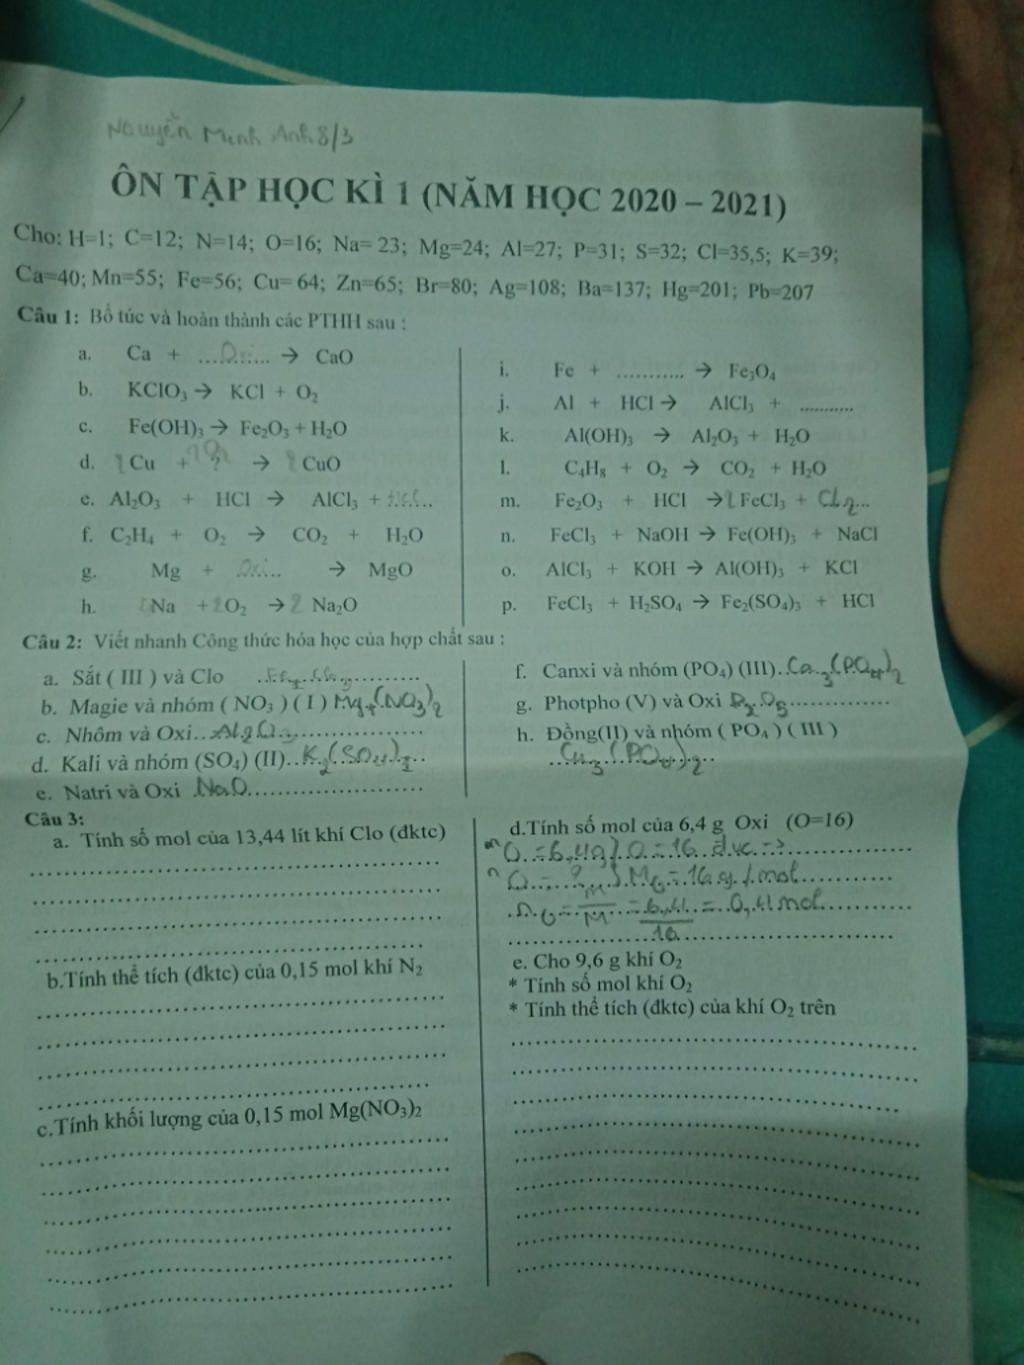 Nguyễn Minh Anh 8/3
ÔN TẬP HỌC KÌ 1 (NĂM HỌC 2020 – 2021)
Cho: H=1; C=12; N=14; O=16; Na= 23; Mg=24; Al=27; P=31; S=32; Cl=35,5; K=39;
Ca=40; Mn=55; Fe=56; Cu= 64; Zn=65; Br=80; Ag=108; Ba=137; Hg=201; Pb=207
Câu 1: Bổ túc và hoàn thành các PTHH sau :
a. Ca + ........... → CaO
b. KClO₃ → KCl + O₂
c. Fe(OH)₃ → Fe₂O₃ + H₂O
d. Cu + ? → CuO
e. Al₂O₃ + HCl → AlCl₃ +
f. C₂H₄ + O₂ → CO₂ + H₂O
g. Mg + → MgO
h. Na + O₂ → 2 Na₂O
i. Fe + ........... → Fe₃O₄
j. Al + HCl → AlCl₃ + ...........
k. Al(OH)₃ → Al₂O₃ + H₂O
l. C₄H₈ + O₂ → CO₂ + H₂O
m. Fe₂O₃ + HCl → FeCl₃ + Cl₂...
n. FeCl₃ + NaOH → Fe(OH)₃ + NaCl
o. AlCl₃ + KOH → Al(OH)₃ + KCl
p. FeCl₃ + H₂SO₄ → Fe₂(SO₄)₃ + HCl
Câu 2: Viết nhanh Công thức hóa học của hợp chất sau :
a. Sắt ( III ) và Clo
b. Magie và nhóm ( NO₃ ) ( I ) (NO₃)₂
c. Nhôm và Oxi
d. Kali và nhóm (SO₄) (II) K₂(SO₄)
e. Natri và Oxi NaO
f. Canxi và nhóm (PO₄) (III) Ca₃(PO₄)₂
g. Photpho (V) và Oxi P₂O₅
h. Đồng(II) và nhóm ( PO₄ ) ( III )
Cu₃(PO₄)₂
Câu 3:
a. Tính số mol của 13,44 lít khí Clo (đktc)
b.Tính thể tích (đktc) của 0,15 mol khí N₂
c.Tính khối lượng của 0,15 mol Mg(NO₃)₂
d.Tính số mol của 6,4 g Oxi (O=16)
O = 6,4g O = 16 đvc =>
O = ? M = 16 g/mol
n O = m/M = 6,4/16 = 0,4 mol
e. Cho 9,6 g khí O₂
* Tính số mol khí O₂
* Tính thể tích (đktc) của khí O₂ trên